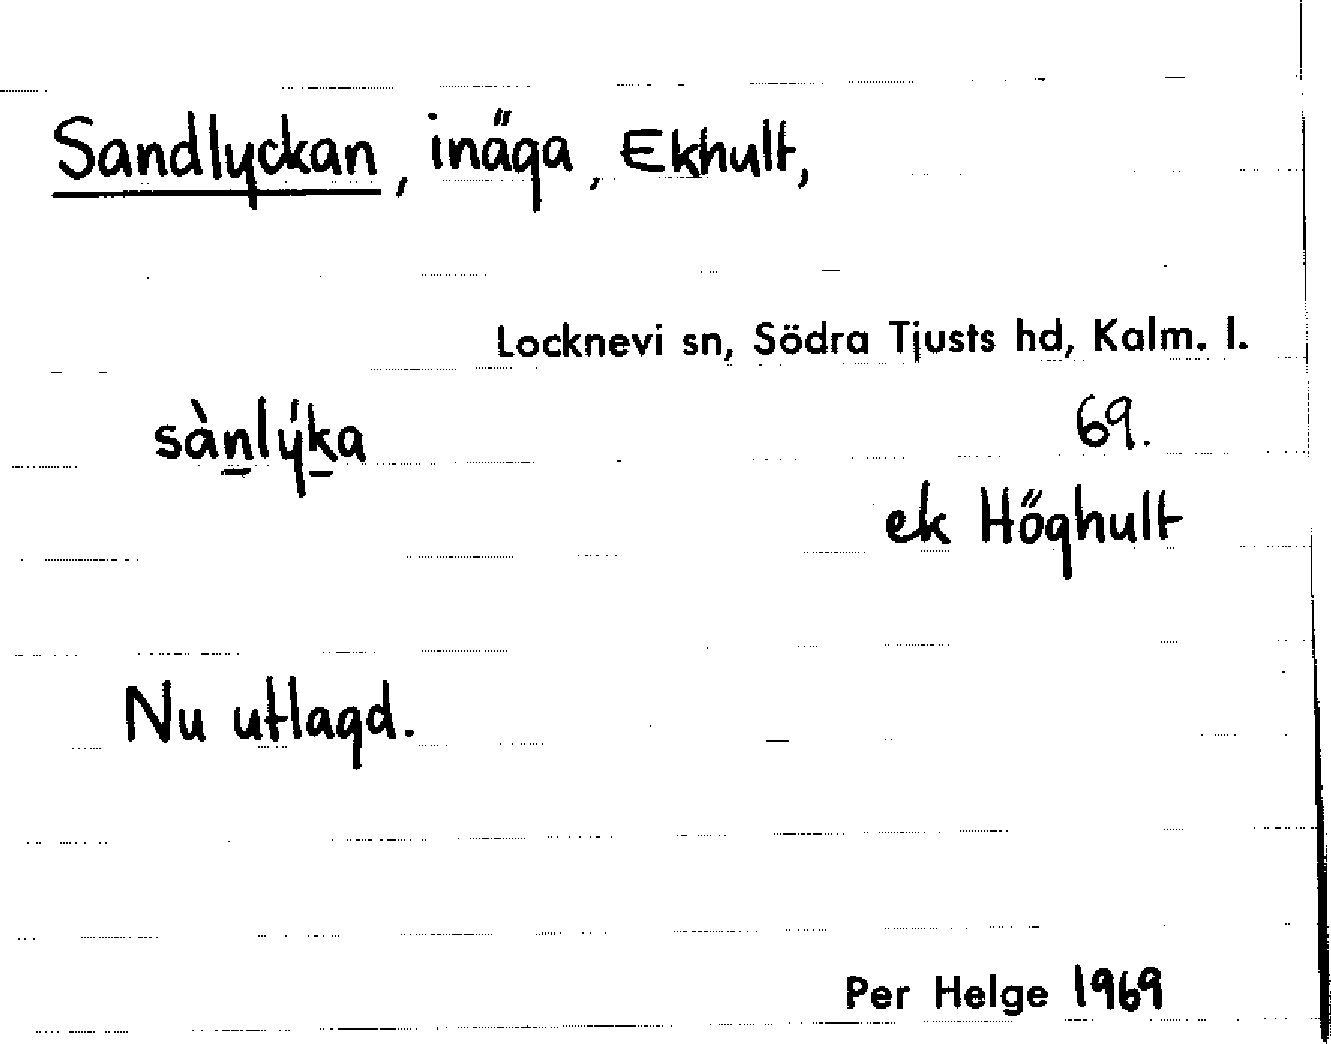 Sandlyckan, inäga, Ekhult,
Locknevi sn, Södra Tjusts hd, Kalm. l.
sàn̲lýk̲a 69.
ek Höghult
Nu utlagd.
Per Helge 1969